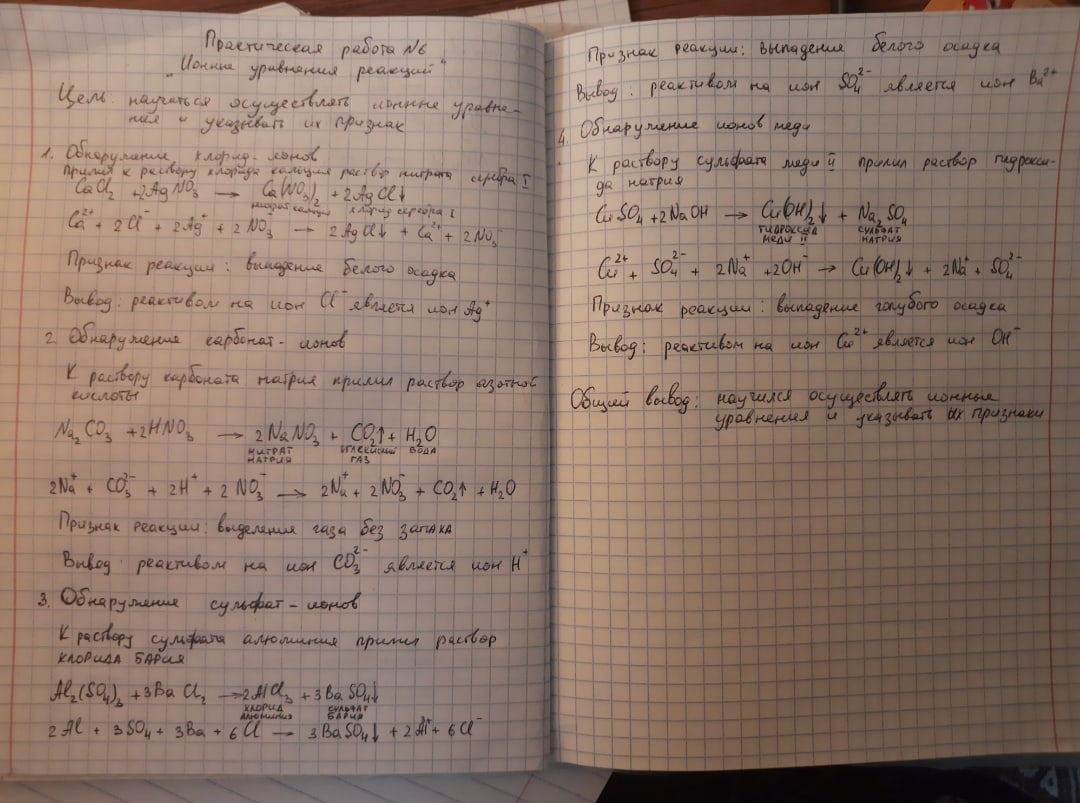 Практическая работа №6
"Ионные уравнения реакций"
Цель: научиться осуществлять ионные уравне-
ния и указывать их признак
1. Обнаружение хлорид-ионов
прилил к раствору хлорида кальция раствор нитрата серебра I
CaCl₂ + 2AgNO₃ → Ca(NO₃)₂ + 2AgCl↓
нитрат кальция хлорид серебра I
Ca²⁺ + 2Cl⁻ + 2Ag⁺ + 2NO₃⁻ → 2AgCl↓ + Ca²⁺ + 2NO₃⁻
Признак реакции: выпадение белого осадка
Вывод: реактивом на ион Cl⁻ является ион Ag⁺
2. Обнаружение карбонат-ионов
К раствору карбоната натрия прилил раствор азотной
кислоты
Na₂CO₃ + 2HNO₃ → 2NaNO₃ + CO₂↑ + H₂O
НИТРАТ УГЛЕКИСЛЫЙ ВОДА
НАТРИЯ ГАЗ
2Na⁺ + CO₃²⁻ + 2H⁺ + 2NO₃⁻ → 2Na⁺ + 2NO₃⁻ + CO₂↑ + H₂O
Признак реакции: выделения газа без запаха
Вывод: реактивом на ион CO₃²⁻ является ион H⁺
3. Обнаружение сульфат-ионов
К раствору сульфата алюминия прилил раствор
хлорида бария
Al₂(SO₄)₃ + 3BaCl₂ → 2AlCl₃ + 3BaSO₄↓
ХЛОРИД СУЛЬФАТ
АЛЮМИНИЯ БАРИЯ
2Al + 3SO₄ + 3Ba + 6Cl → 3BaSO₄↓ + 2Al⁺ + 6Cl⁻
Признак реакции: выпадение белого осадка
Вывод: реактивом на ион SO₄²⁻ является ион Ba²⁺
4. Обнаружение ионов меди
К раствору сульфата меди II прилил раствор гидрокси-
да натрия
CuSO₄ + 2NaOH → Cu(OH)₂↓ + Na₂SO₄
ГИДРОКСИД СУЛЬФАТ
МЕДИ II НАТРИЯ
Cu²⁺ + SO₄²⁻ + 2Na⁺ + 2OH⁻ → Cu(OH)₂↓ + 2Na⁺ + SO₄²⁻
Признак реакции: выпадение голубого осадка
Вывод: реактивом на ион Cu²⁺ является ион OH⁻
Общий вывод: научился осуществлять ионные
уравнения и указывать их признаки